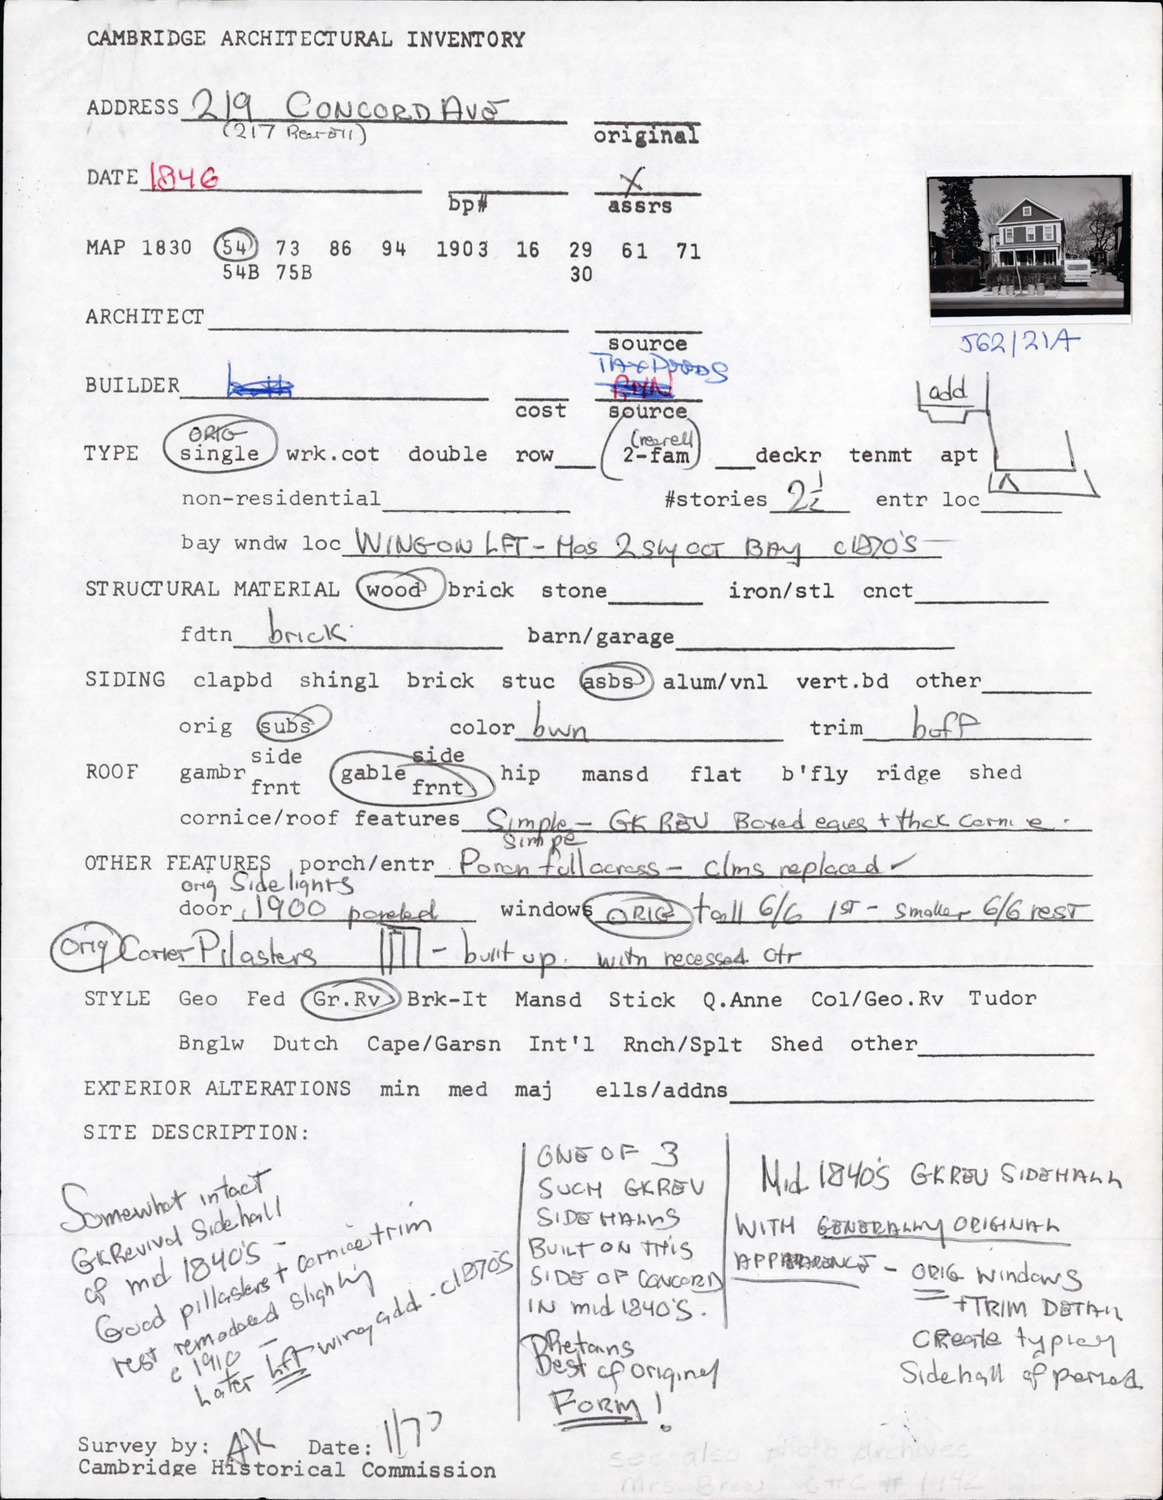 CAMBRIDGE ARCHITECTURAL INVENTORY
ADDRESS 219 CONCORD AVE
(217 Rear ell) original
DATE 1846
bp# X assrs
MAP 1830 54 73 86 94 1903 16 29 61 71
54B 75B 30
ARCHITECT
source
562/21A
TAX RECORDS
BUILDER
cost source
add
ORIG (rear ell
TYPE single wrk.cot double row 2-fam deckr tenmt apt
non-residential #stories 2½ entr loc
bay wndw loc WING-ON LFT - Has 2 sty OCT BAY c1870'S
STRUCTURAL MATERIAL wood brick stone iron/stl cnct
fdtn brick barn/garage
SIDING clapbd shingl brick stuc asbs alum/vnl vert.bd other
orig subs color bwn trim buff
side side
ROOF gambr gable hip mansd flat b'fly ridge shed
frnt frnt
cornice/roof features Simple - GK REV Boxed eaves + thck cornice.
Simple
OTHER FEATURES porch/entr Porch full across - clms replaced ✓
orig Sidelights
door, 1900 paneled windows ORIG tall 6/6 1ST - smaller 6/6 rest
Orig Corner Pilasters - built up. with recessed ctr
STYLE Geo Fed Gr.Rv Brk-It Mansd Stick Q.Anne Col/Geo.Rv Tudor
Bnglw Dutch Cape/Garsn Int'l Rnch/Splt Shed other
EXTERIOR ALTERATIONS min med maj ells/addns
SITE DESCRIPTION:
Somewhat intact
GkRevival Sidehall
of mid 1840'S -
Good pillasters + cornice trim
rest remodeled slightly
c 1910 -
Later Lft wing add. c1870'S
ONE OF 3
SUCH GKREV
SIDEHALLS
BUILT ON THIS
SIDE OF CONCORD
IN mid 1840'S.
Retains
Best of original
FORM!
Mid 1840'S GKREV SIDEHALL
WITH GENERALLY ORIGINAL
APPEARANCE - ORIG windows
+ TRIM DETAIL
Create typical
Sidehall of period
Survey by: AK Date: 1/77
Cambridge Historical Commission
see also photo archives
Mrs CHC # 1442